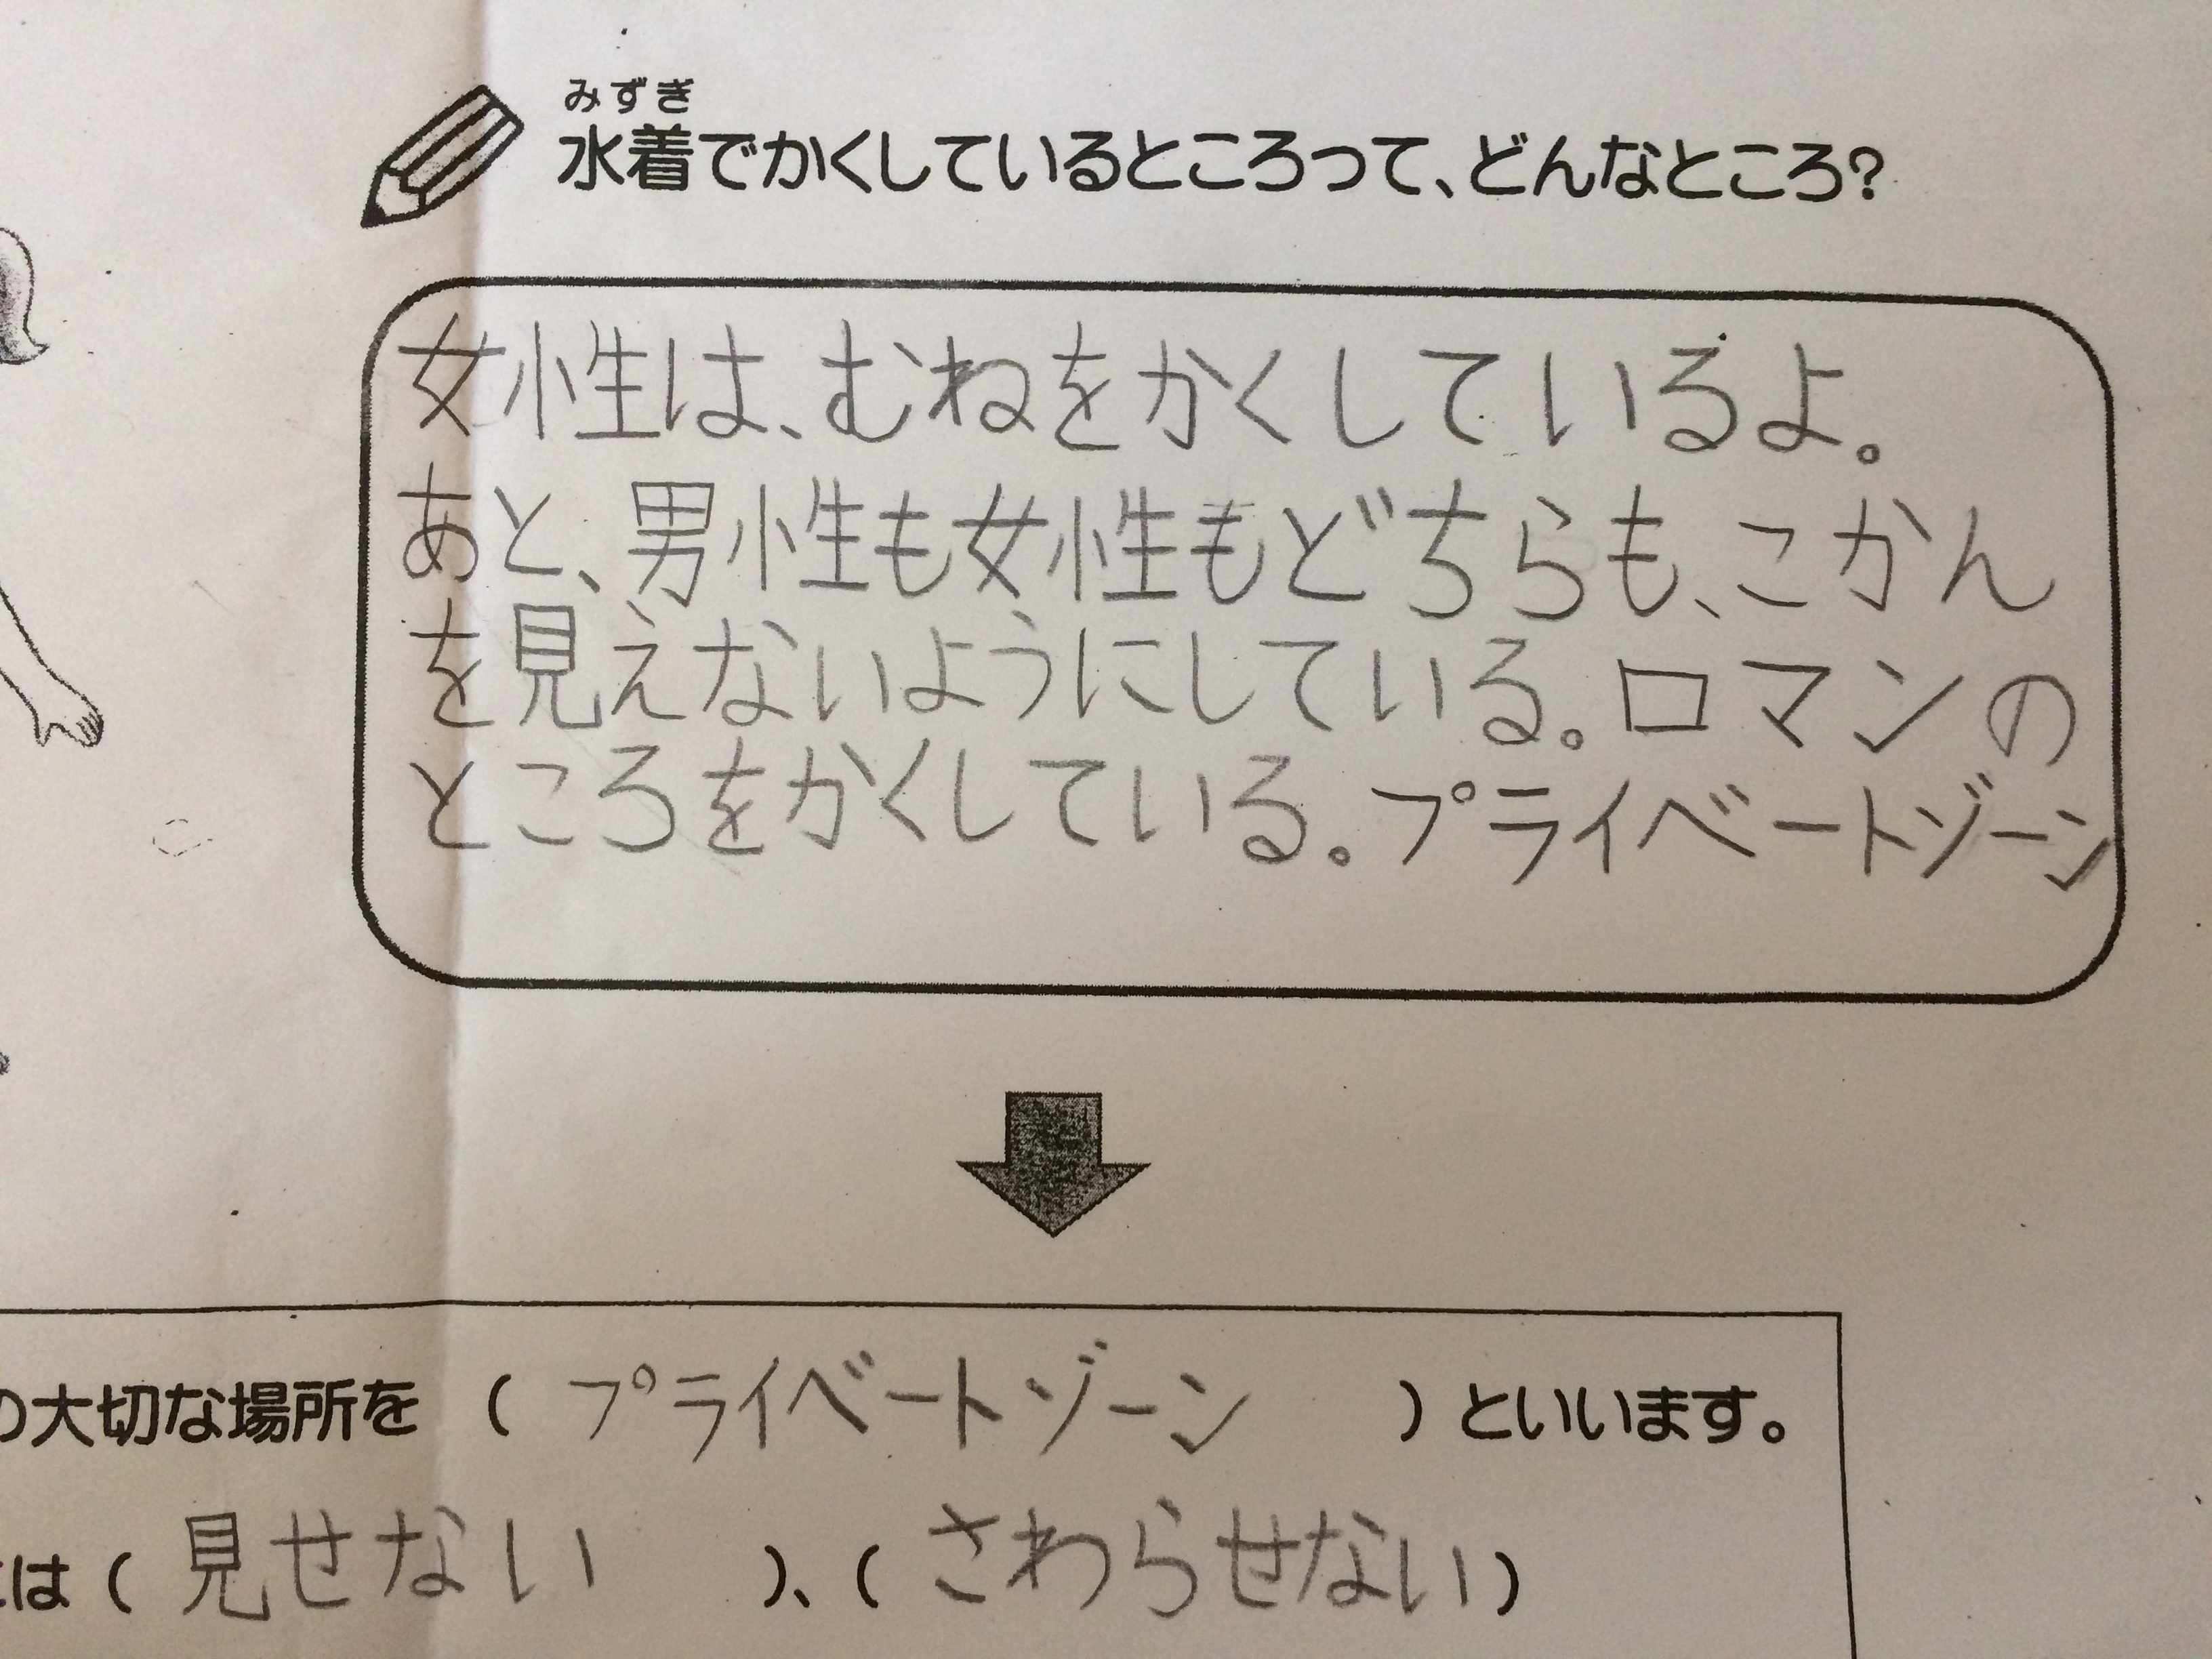 みずぎ
水着でかくしているところって、どんなところ?
女性は、むねをかくしているよ。
あと、男性も女性もどちらも、こかん
を見えないようにしている。ロマンの
ところをかくしている。プライベートゾーン
の大切な場所を ( プライベートゾーン ) といいます。
は ( 見せない )、( さわらせない )